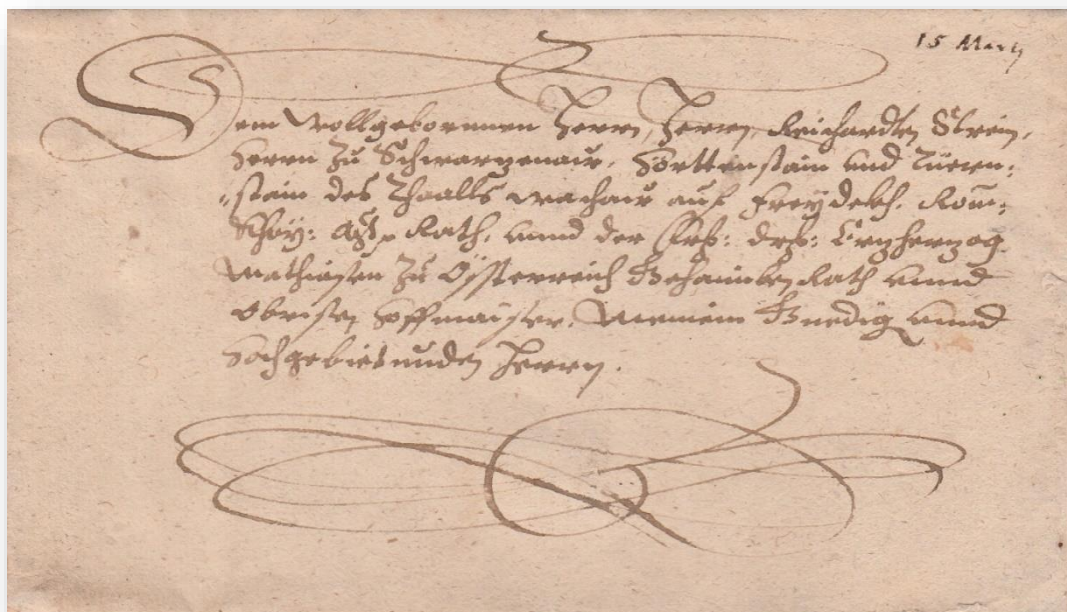 15 Marty
Dem Wollgebornnen Herrn, Herrn, Reichardten Strein,
Herrn zu Schwarzenaw, Herttenstain und Tüern:
stain des Thaalls Wachaw auf Freydekh. Röm:
Khay: Rath, unnd der Erzherzog
Mathiasen zu Össterreich Gehaimben Rath unnd
Obristen Hoffmaister. Meinem Gnedig unnd
Hochgebietunden Herrn.